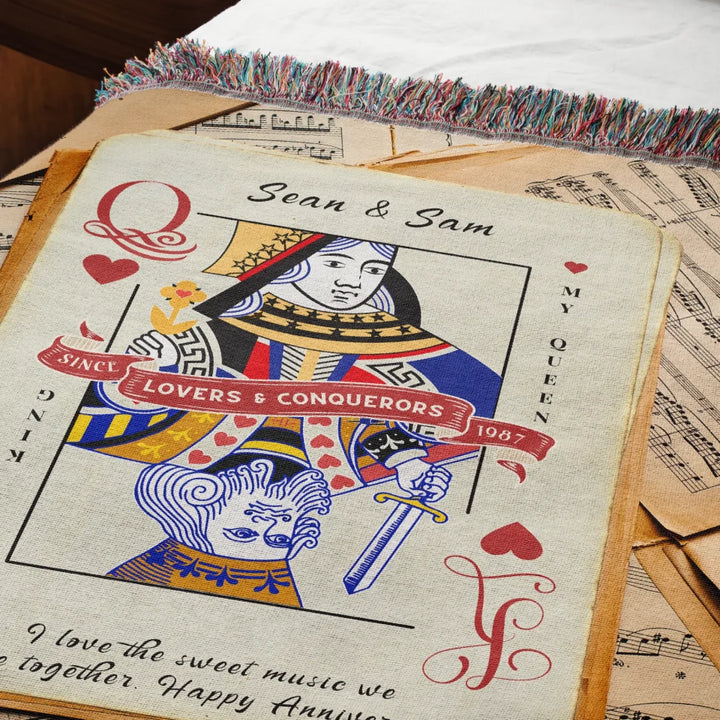 Sean & Sam
Q
MY QUEEN
SINCE
LOVERS & CONQUERORS
1987
KING
I love the sweet music we
together. Happy